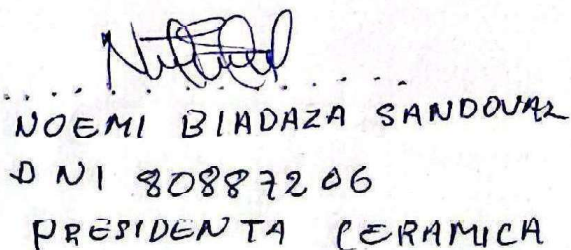 NOEMI BIADAZA SANDOVAL
DNI 80887206
PRESIDENTA CERAMICA